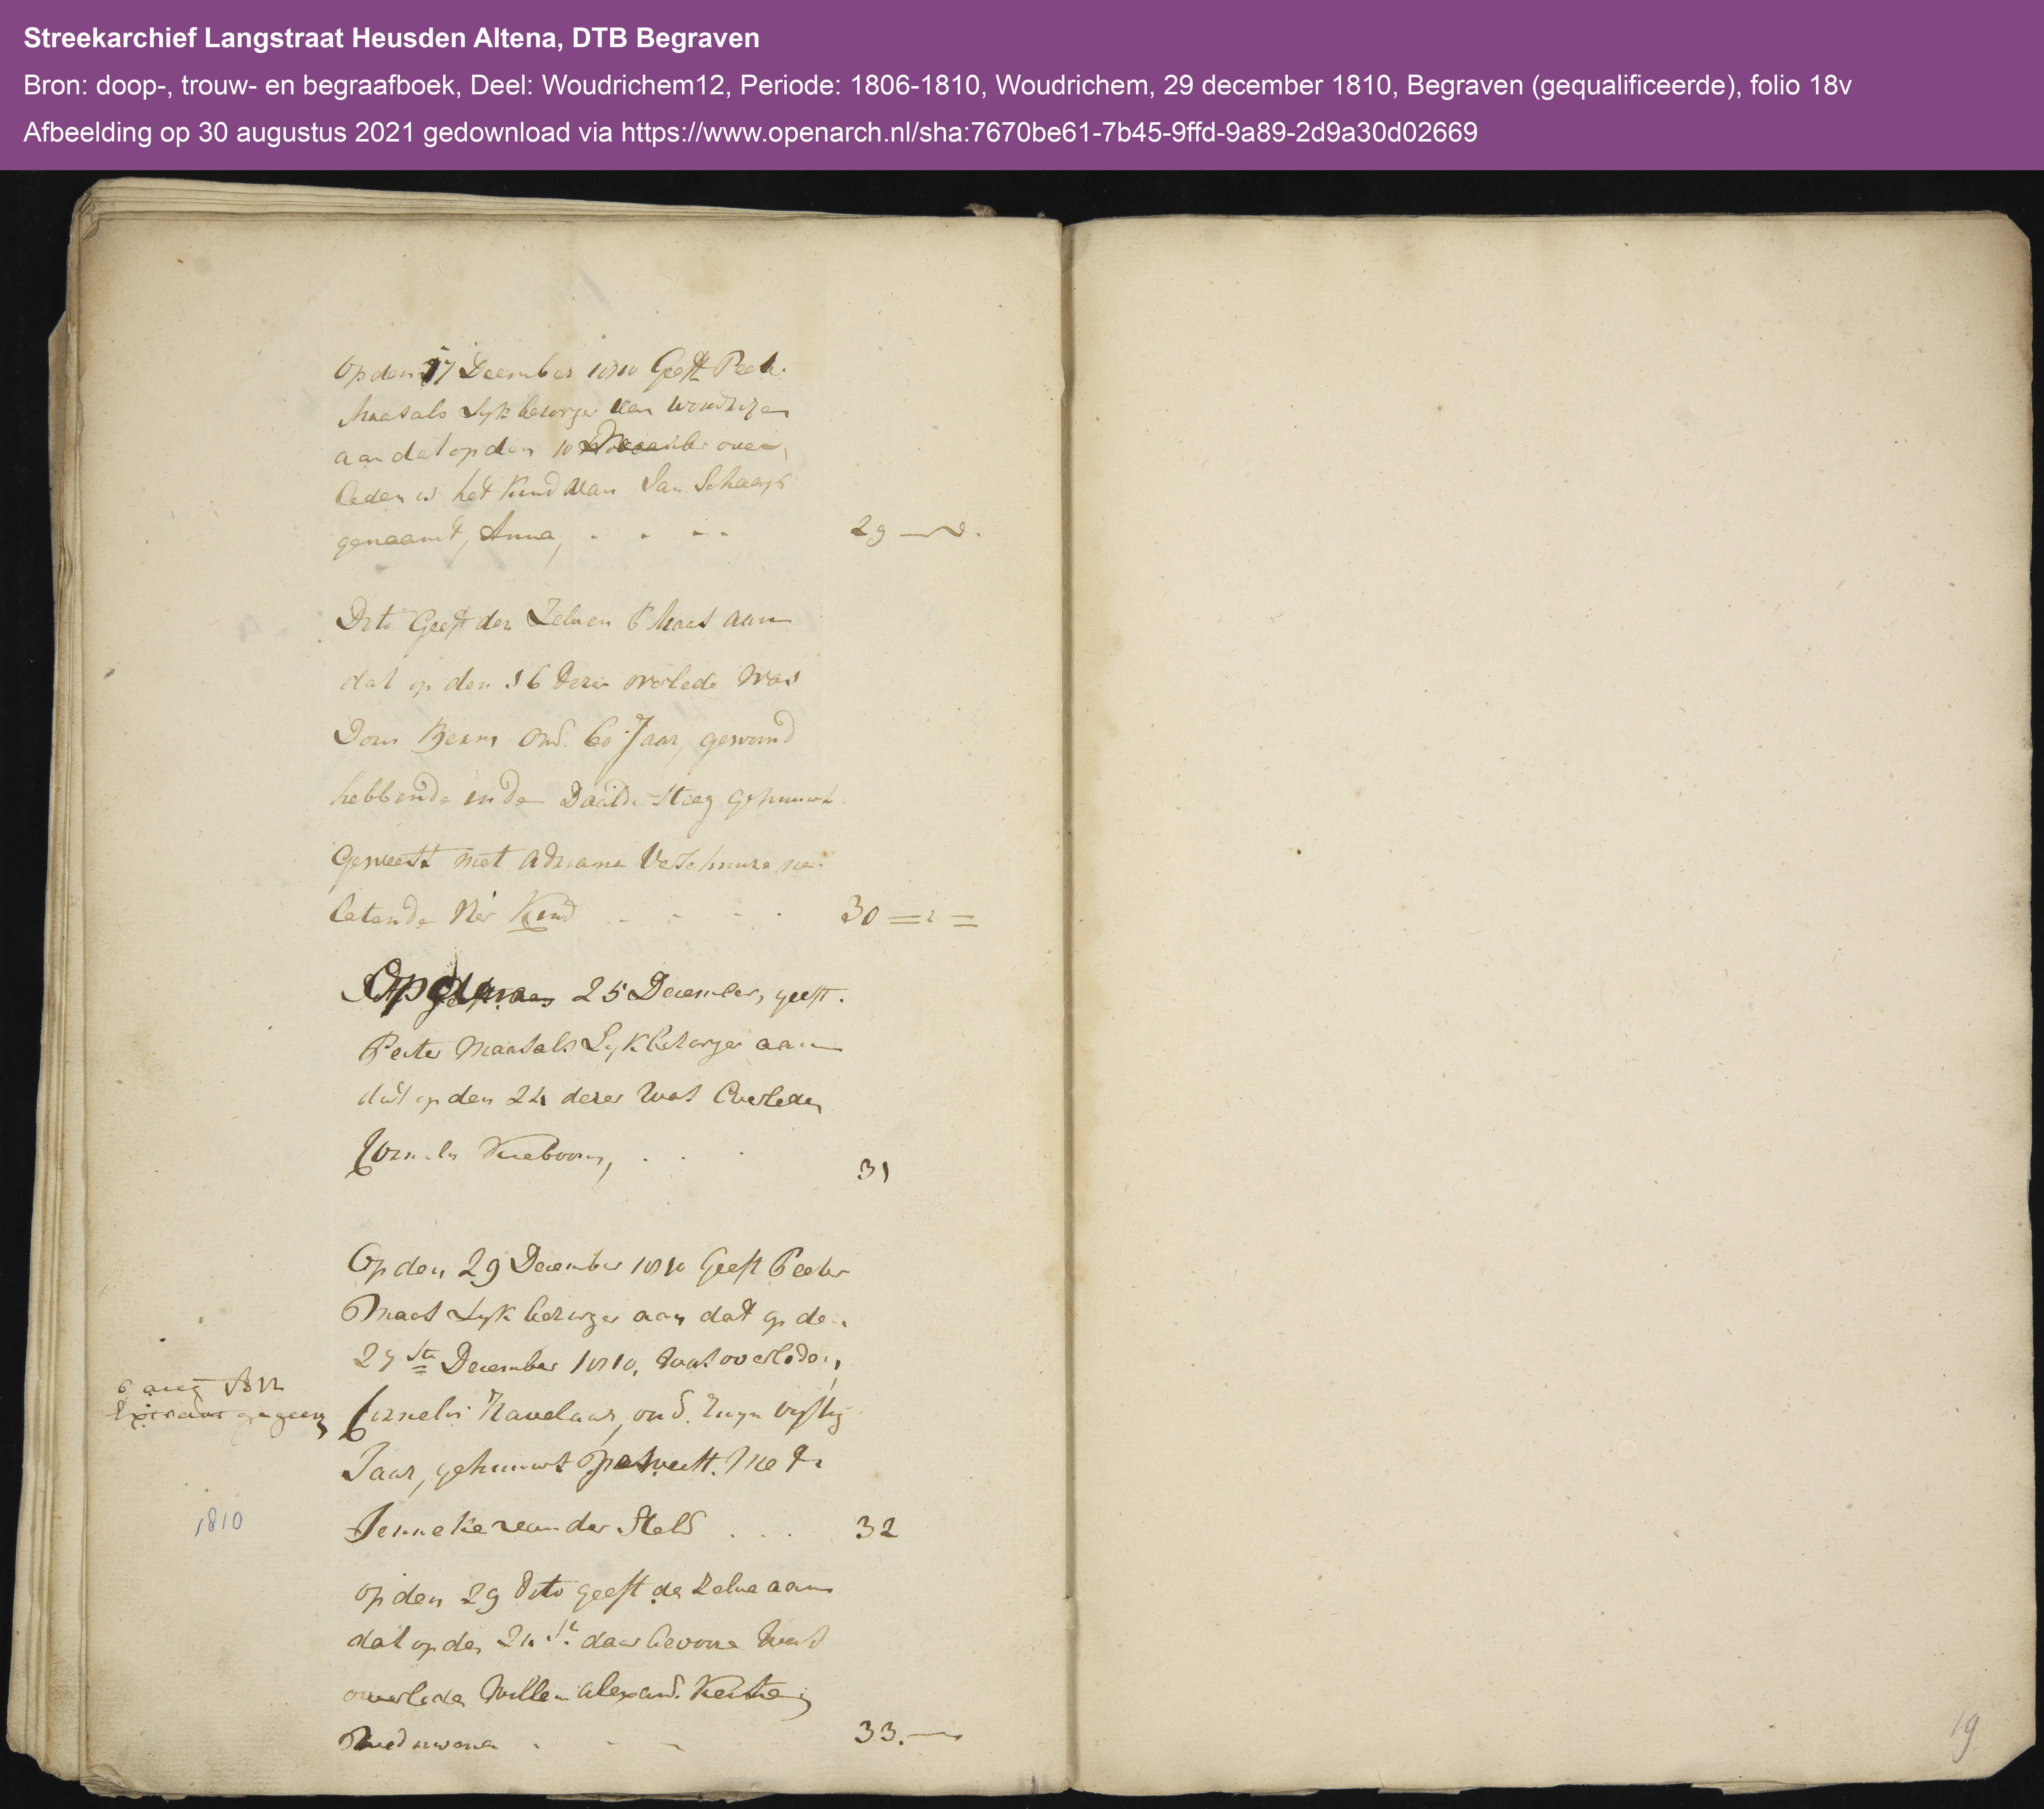 Streekarchief Langstraat Heusden Altena, DTB Begraven
Bron: doop-, trouw- en begraafboek, Deel: Woudrichem12, Periode: 1806-1810, Woudrichem, 29 december 1810, Begraven (gequalificeerde), folio 18v
Afbeelding op 30 augustus 2021 gedownload via https://www.openarch.nl/sha:7670be61-7b45-9ffd-9a89-2d9a30d02669
Op den 17 December 1810 Geeft Peeter
Maas als Lyk bezorger van
aan dat op den 10 over
leden is het Kind van Jan Schaap
genaamt, Anna, 29
Dito Geeft den Zelven P Maas aan
dat op den 16 dezer overlede was
Oud. 60 Jaar, gewoond
hebbende in de steeg gehuuwt
Geweest met Adriana Verschuure na
latende Kind 30
Op den 25 December, geeft
Peeter Maas als Lyk bezorger aan
dat op den 24 dezer was overleden
31
Op den 29 December 1810 Geeft Peeter
Maas Lyk bezorger aan dat op den
December 1810, was overleden,
6 aug
Extract gegeven
Cornelis Havelaar, oud. ruym vyftig
Jaar, gehuuwt geweest. Met
1810
Jenneke van der Steld 32
op den 29 dito geeft de Zelve aan
dat op den daar bevoore was
overleden Willem Alexand.
33.
19